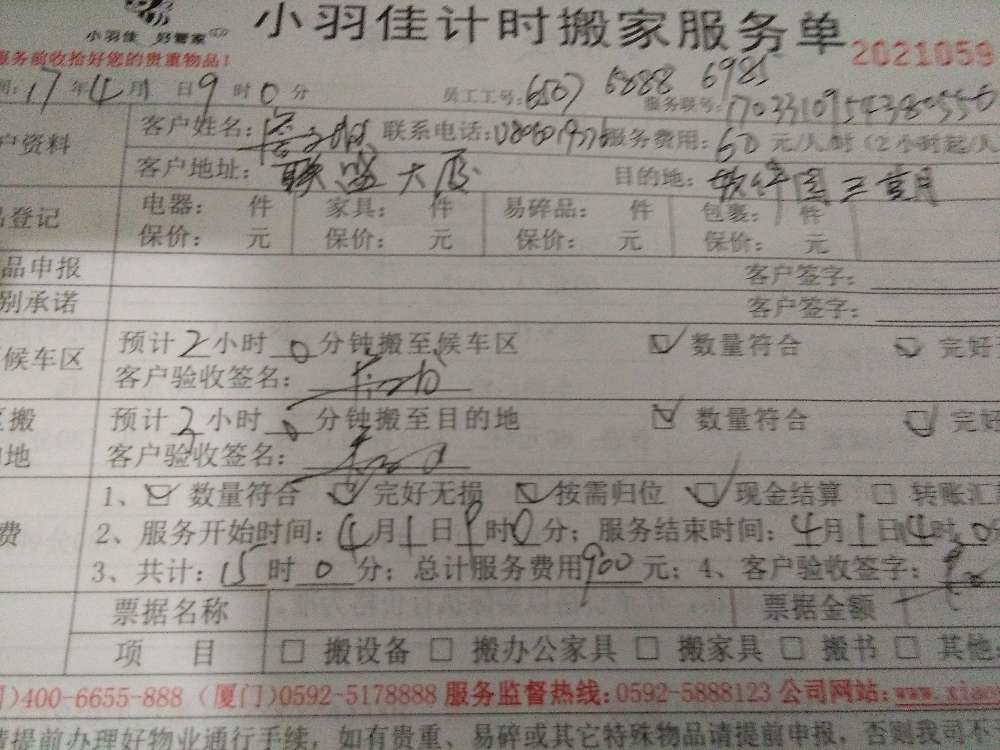 小羽佳 好管家
小羽佳计时搬家服务单 2021059
服务前收拾好您的贵重物品!
17年4月1日9时0分 员工工号:6507 6888 6985
服务联号:
户资料 客户姓名: 联系电话: 服务费用:60元/人/时(2小时起/人
客户地址:联盛大厦 目的地:软件园三期
品登记 电器: 件 家具: 件 易碎品: 件 包裹: 件
保价: 元 保价: 元 保价: 元 保价: 元
品申报 客户签字:
别承诺 客户签字:
候车区 预计2小时0分钟搬至候车区 数量符合 完好
客户验收签名:
搬 预计2小时0分钟搬至目的地 数量符合 完好
地 客户验收签名:
1、☑数量符合 ☑完好无损 ☑按需归位 ☑现金结算 □转账汇
费 2、服务开始时间:4月1日9时0分;服务结束时间:4月1日14时0分
3、共计:15时0分;总计服务费用900元;4、客户验收签字:
票据名称 票据金额
项 目 □ 搬设备 □ 搬办公家具 □ 搬家具 □ 搬书 □ 其他:
)400-6655-888(厦门)0592-5178888 服务监督热线:0592-5888123 公司网站:www.xiao
请提前办理好物业通行手续,如有贵重、易碎或其它特殊物品请提前申报,否则我司不